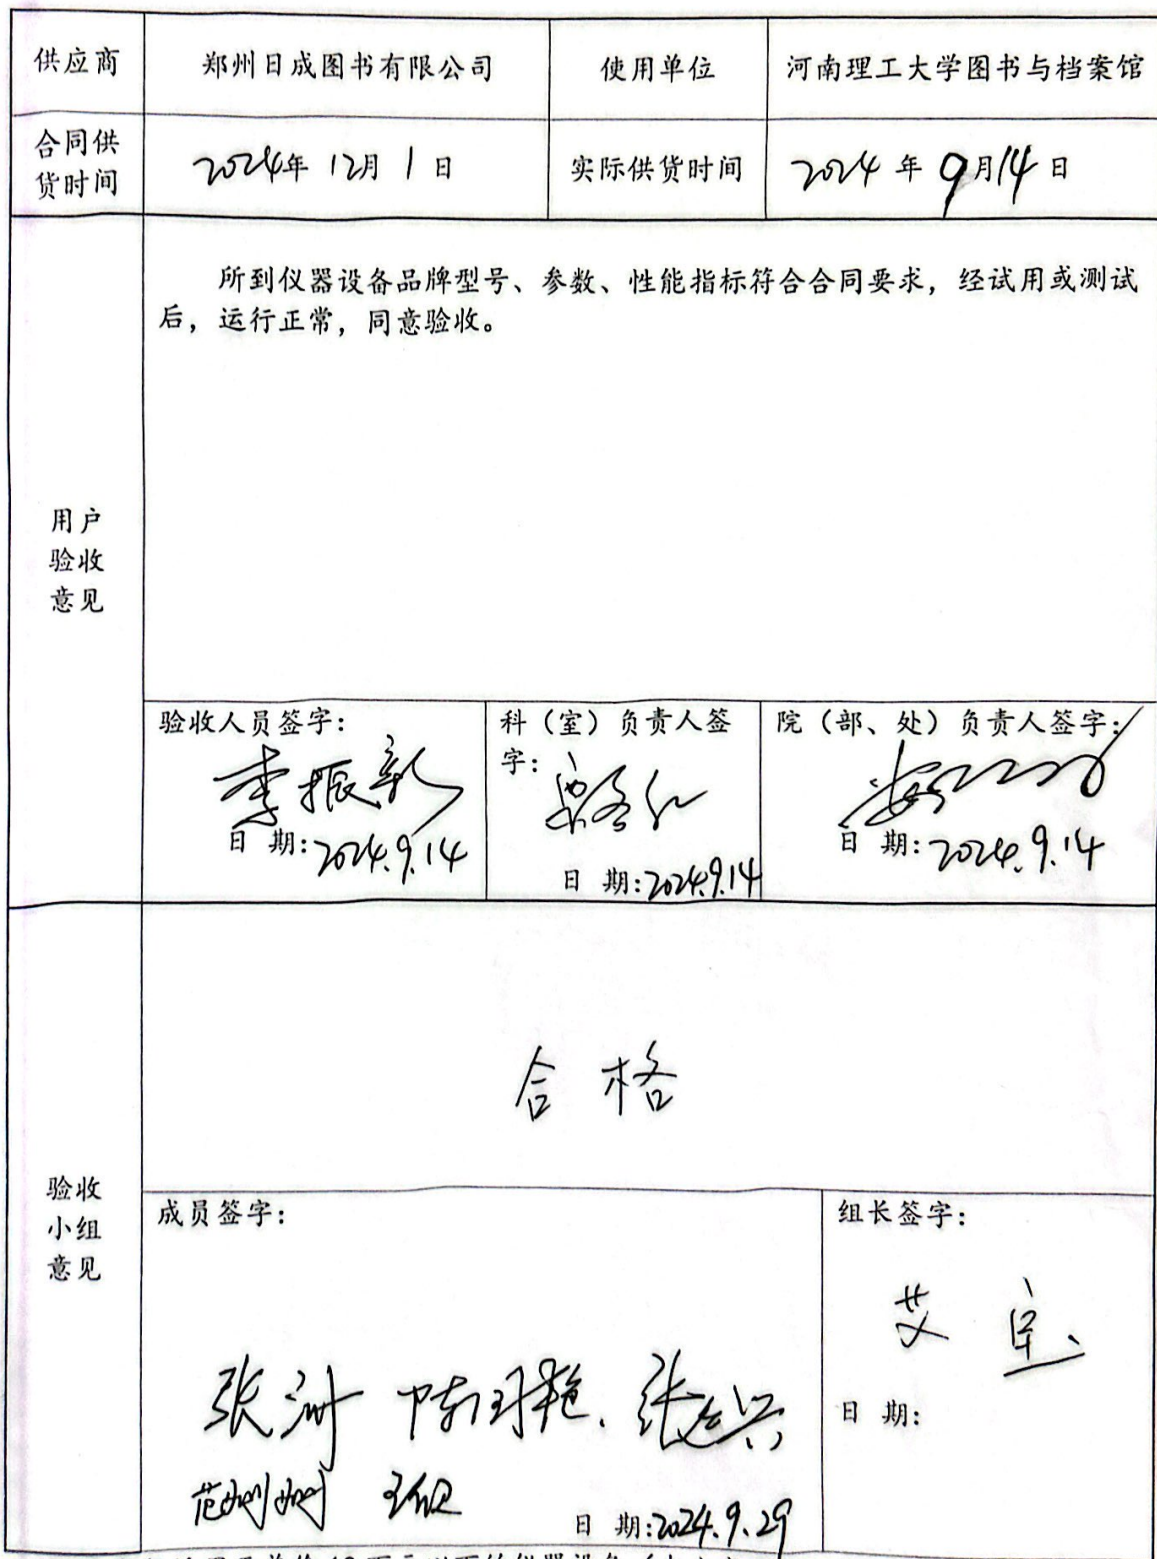 供应商 郑州日成图书有限公司 使用单位 河南理工大学图书与档案馆
合同供
货时间
2024年 12月 1日 实际供货时间 2024年 9月14日
所到仪器设备品牌型号、参数、性能指标符合合同要求，经试用或测试
后，运行正常，同意验收。
用户
验收
意见
验收人员签字：
李振新
日 期：2024.9.14
科（室）负责人签
字：
日 期：2024.9.14
院（部、处）负责人签字：
日 期：2024.9.14
合格
验收
小组
意见
成员签字：
张
张
日 期：2024.9.29
组长签字：
艾
日 期：